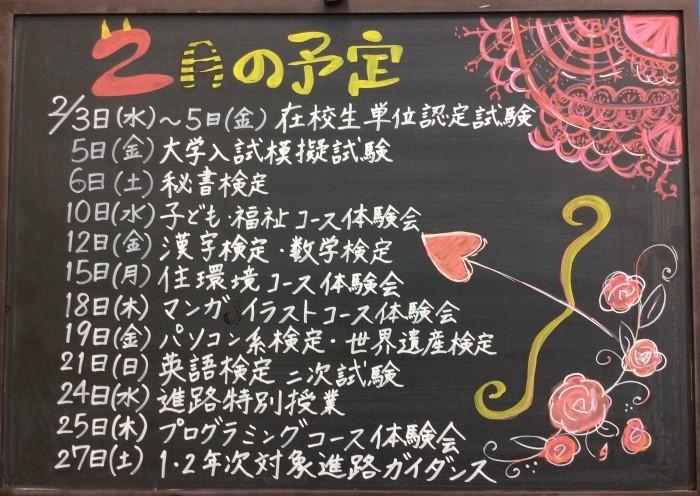 2月の予定
2/3日(水)～5日(金) 在校生単位認定試験
5日(金) 大学入試模擬試験
6日(土) 秘書検定
10日(水) 子ども・福祉コース体験会
12日(金) 漢字検定・数学検定
15日(月) 住環境コース体験会
18日(木) マンガイラストコース体験会
19日(金) パソコン系検定・世界遺産検定
21日(日) 英語検定 二次試験
24日(水) 進路特別授業
25日(木) プログラミングコース体験会
27日(土) 1・2年次対象進路ガイダンス